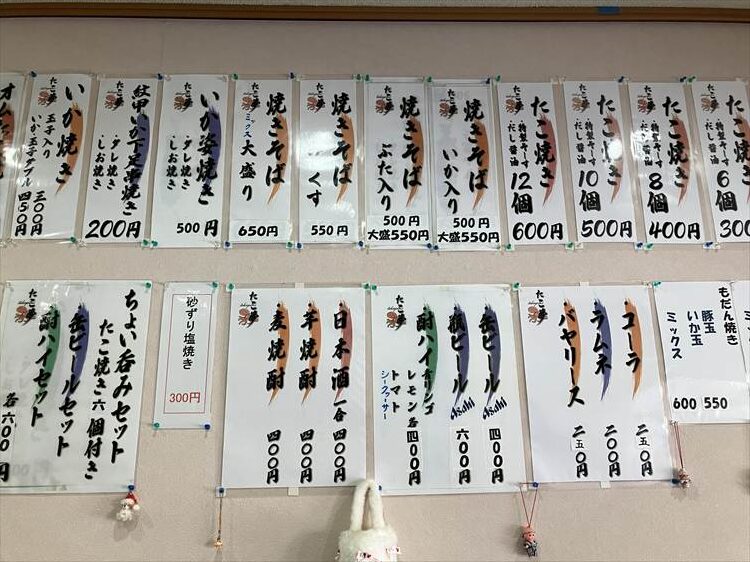 たこ焼き
・特製ソース
・だし醤油
6個
300
たこ夢
たこ焼き
・特製ソース
・だし醤油
8個
400円
たこ夢
たこ焼き
・特製ソース
・だし醤油
10個
500円
たこ夢
たこ焼き
・特製ソース
・だし醤油
12個
600円
たこ夢
焼きそば
いか入り
500円
大盛550円
たこ夢
焼きそば
ぶた入り
500円
大盛550円
たこ夢
焼きそば
くす
550円
たこ夢
焼きそば
ミックス大盛り
650円
たこ夢
いか姿焼き
・タレ焼き
・しお焼き
500円
たこ夢
紋甲いか下足串焼き
・タレ焼き
・しお焼き
200円
たこ夢
いか焼き
玉子入り 三〇〇円
いか玉子ダブル 四五〇円
オム
もだん焼き
豚玉
いか玉 550
ミックス 600
たこ夢
・コーラ 二五〇円
・ラムネ 二〇〇円
・バヤリース 二五〇円
たこ夢
・缶ビール Asahi 四〇〇円
・瓶ビール Asahi 六〇〇円
・酎ハイ リンゴ
レモン 各四〇〇円
トマト
シークァーサー
たこ夢
・日本酒 一合 四〇〇円
・芋焼酎 四〇〇円
・麦焼酎 四〇〇円
砂ずり塩焼き
300円
たこ夢
ちょい呑みセット
たこ焼き六個付き
・缶ビールセット
・酎ハイセット
各六〇〇円